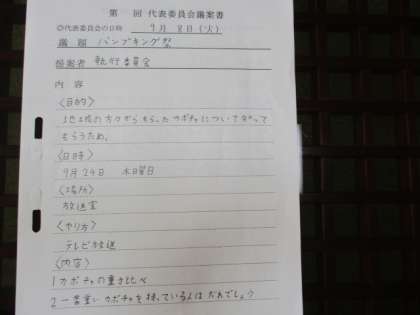 第　回 代表委員会議案書
◎代表委員会の日時　9月8日(火)
議題　パンプキング祭
提案者　執行委員会
内容
〈目的〉
地域の方々からもらったカボチャについて知って
もらうため。
〈日時〉
9月24日　木曜日
〈場所〉
放送室
〈やり方〉
テレビ放送
〈内容〉
1 カボチャの重さ比べ
2 一番重いカボチャを持っている人はだれでしょう